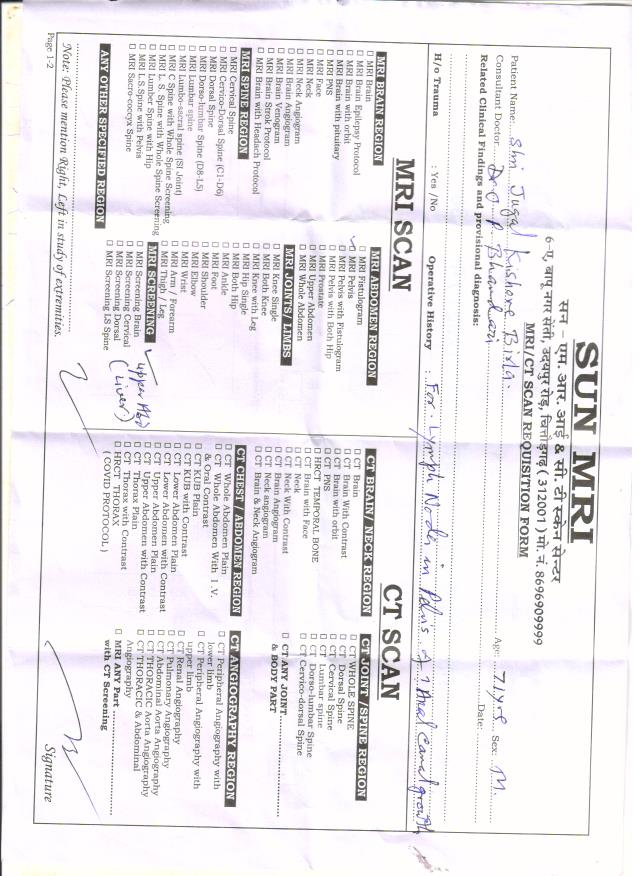 SUN MRI
सन - एम. आर. आई & सी. टी स्केन सेन्टर
6-ए, बापू नगर सेंती, उदयपुर रोड़, चित्तौड़गढ़ ( 312001 ) मो. नं. 8696909999
MRI/CT SCAN REQUISITION FORM
Patient Name: Shri Jugal Kishore Birla Age: 71 yrs Sex: M.
Consultant Doctor: Dr O P Bhandari Date:
Related Clinical Findings and provisional diagnosis:
H/o Trauma : Yes /No Operative History : For Lymph Nodes in Pelvis of ? Anal canal growth
MRI SCAN
MRI BRAIN REGION
MRI Brain
MRI Brain Epilepsy Protocol
MRI Brain with orbit
MRI Brain with pituitary
MRI PNS
MRI Face
MRI Neck
MRI Neck Angiogram
MRI Brain Angiogram
MRI Brain Venogram
MRI Brain Strok Protocol
MRI Brain with Headach Protocol
MRI SPINE REGION
MRI Cervical Spine
MRI Cervico-Dorsal Spine (C1-D6)
MRI Dorsal Spine
MRI Dorso-lumbar Spine (D8-L5)
MRI Lumbar spine
MRI Lumbo-sacral spine (SI Joint)
MRI C Spine with Whole Spine Screening
MRI L. S. Spine with Whole Spine Screening
MRI Lumber Spine with Hip
MRI L.S.Spine with Pelvis
MRI Sacro-coccyx Spine
ANY OTHER SPECIFIED REGION
MRI ABDOMEN REGION
MRI Fistulogram
MRI Pelvis
MRI Pelvis with Fistulogram
MRI Pelvis with Both Hip
MRI Prostate
MRI Upper Abdomen
MRI Whole Abdomen
MRI JOINTS/ LIMBS
MRI Knee Single
MRI Both Knee
MRI Knee with Leg
MRI Hip Single
MRI Both Hip
MRI Ankle
MRI Foot
MRI Shoulder
MRI Elbow
MRI Wrist
MRI Arm / Forearm
MRI Thigh / Leg
MRI SCREENING
upper Abd
(Liver)
MRI Screening Brain
MRI Screening Cervical
MRI Screening Dorsal
MRI Screening LS Spine
CT SCAN
CT BRAIN / NECK REGION
CT Brain
CT Brain With Contrast
CT Brain with orbit
CT PNS
HRCT TEMPORAL BONE
CT Brain with Face
CT Neck
CT Neck With Contrast
CT Brain Angiogram
CT Neck angiogram
CT Brain & Neck Angiogram
CT CHEST / ABDOMEN REGION
CT Whole Abdomen Plain
CT Whole Abdomen With I .V.
& Oral Contrast
CT KUB Plain
CT KUB with Contrast
CT Lower Abdomen Plain
CT Lower Abdomen with Contrast
CT Upper Abdomen Plain
CT Upper Abdomen with Contrast
CT Thorax Plain
CT Thorax with Contrast
HRCT THORAX
( COVID PROTOCOL )
CT JOINT /SPINE REGION
CT WHOLE SPINE
CT Dorsal Spine
CT Cervical Spine
CT Lumbar spine
CT Dorso-lumbar Spine
CT Cervico-dorsal Spine
CT ANY JOINT
& BODY PART
CT ANGIOGRAPHY REGION
CT Peripheral Angiography with
lower limb
CT Peripheral Angiography with
upper limb
CT Renal Angiography
CT Pulmonary Angiography
CT Abdominal Aorta Angiography
CT THORACIC Aorta Angiography
CT THORACIC & Abdominal
Angiography
MRI ANY Part
with CT Screening
Note: Please mention Right, Left in study of extremities.
Signature
Page 1-2